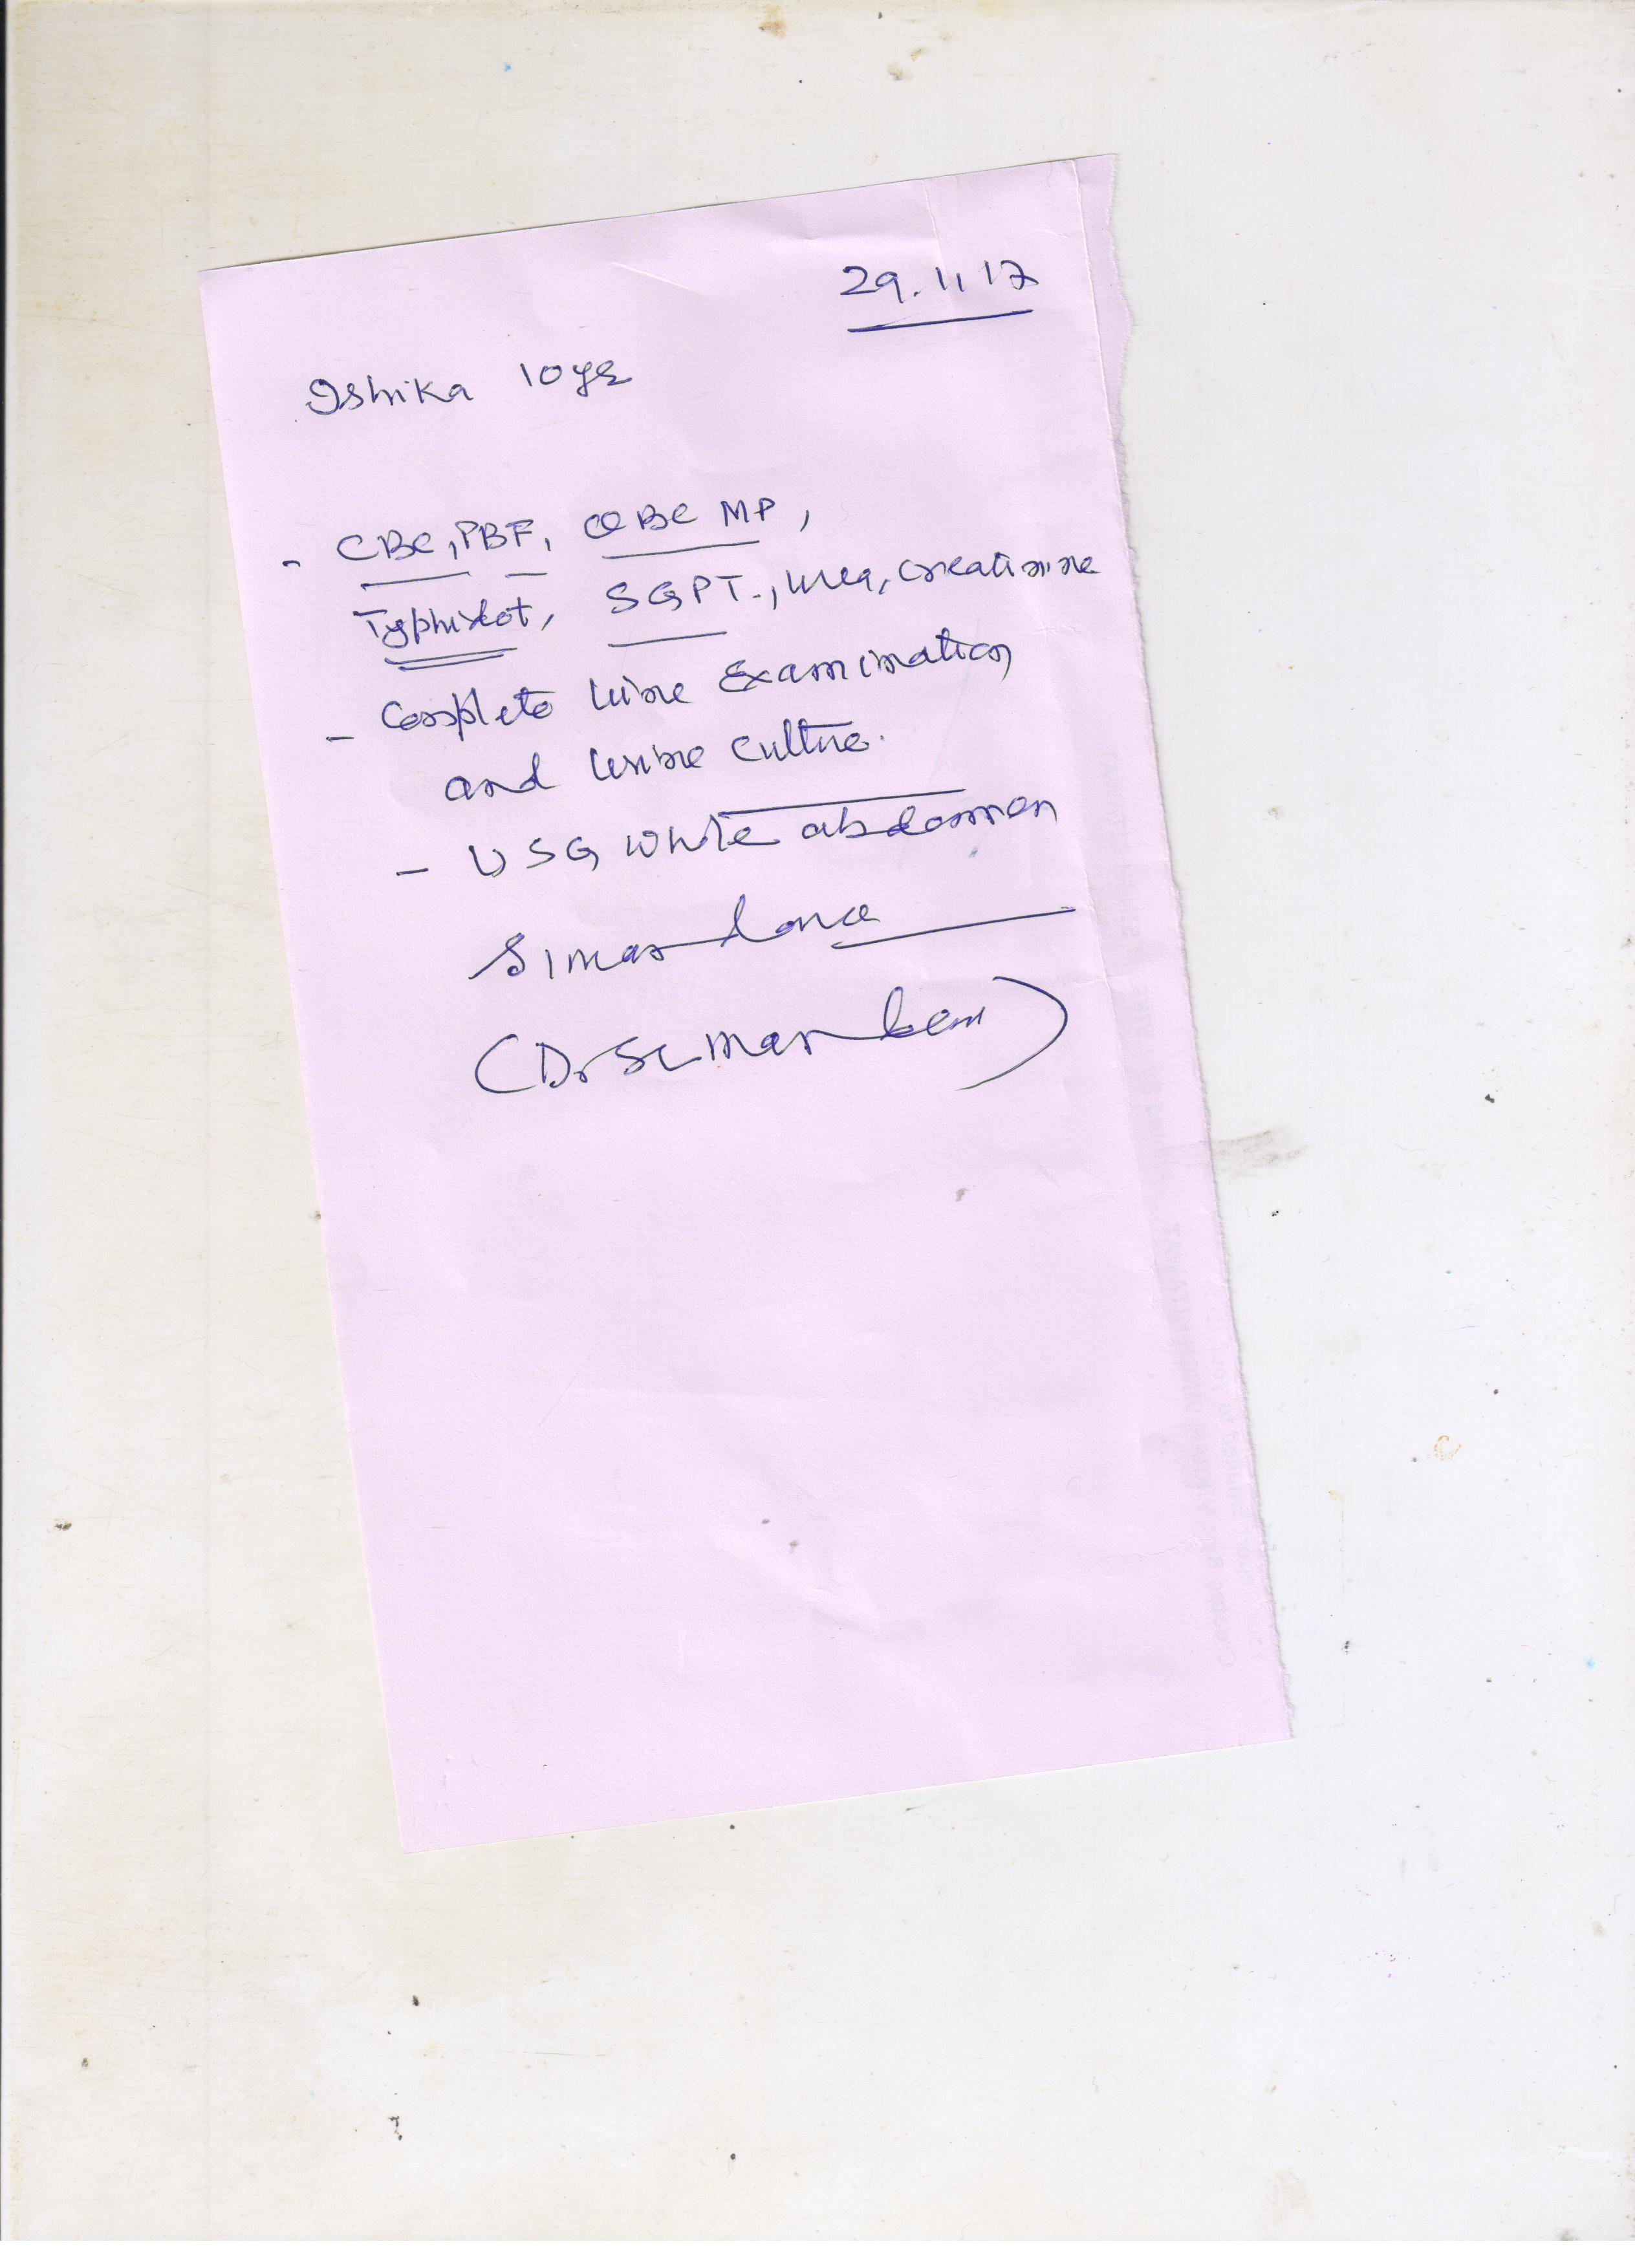 29.11.17
Ishika 10yrs
- CBC, PBF, QBC MP,
Typhidot, SGPT., urea, creatinine
- Complete Urine Examination
and Urine Culture.
- USG whole abdomen
Siman
(Dr Siman